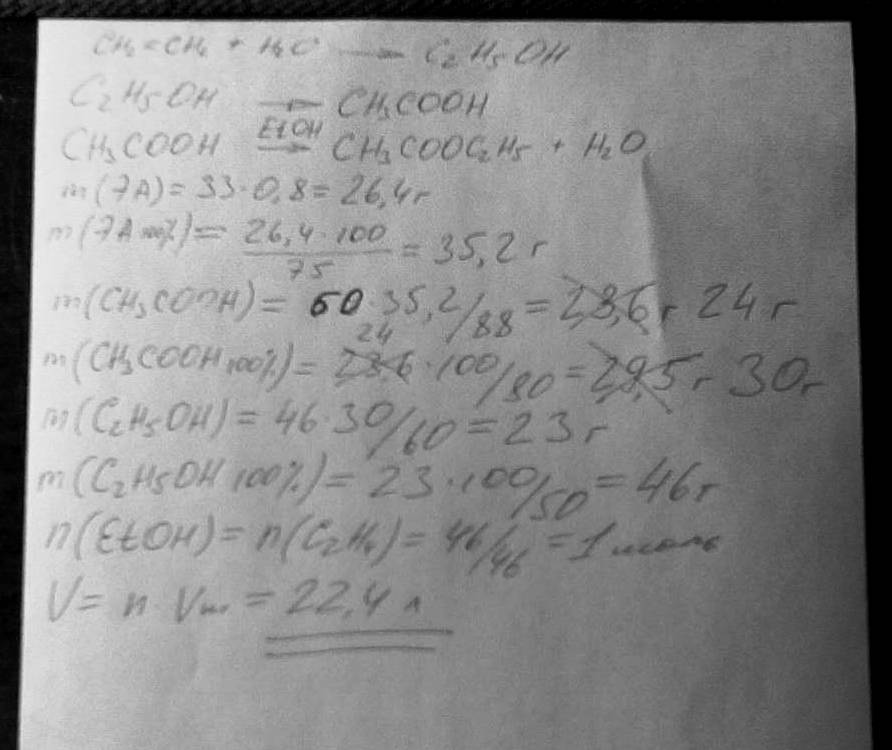 CH₂=CH₂ + H₂O → C₂H₅OH
C₂H₅OH → CH₃COOH
CH₃COOH EtOH → CH₃COOC₂H₅ + H₂O
m(ЭА)= 33·0,8= 26,4г
m(ЭА 100%)= 26,4·100/75 = 35,2 г
m(CH₃COOH)= 60·35,2/88 = 23,6 г 24 г
m(CH₃COOH 100%)= 23,6 24 ·100/80 = 29,5 г 30г
m(C₂H₅OH)= 46·30/60 = 23 г
m(C₂H₅OH 100%)= 23·100/50 = 46г
n(EtOH)= n(C₂H₄)= 46/46 = 1 моль
V= n Vm = 22,4 л